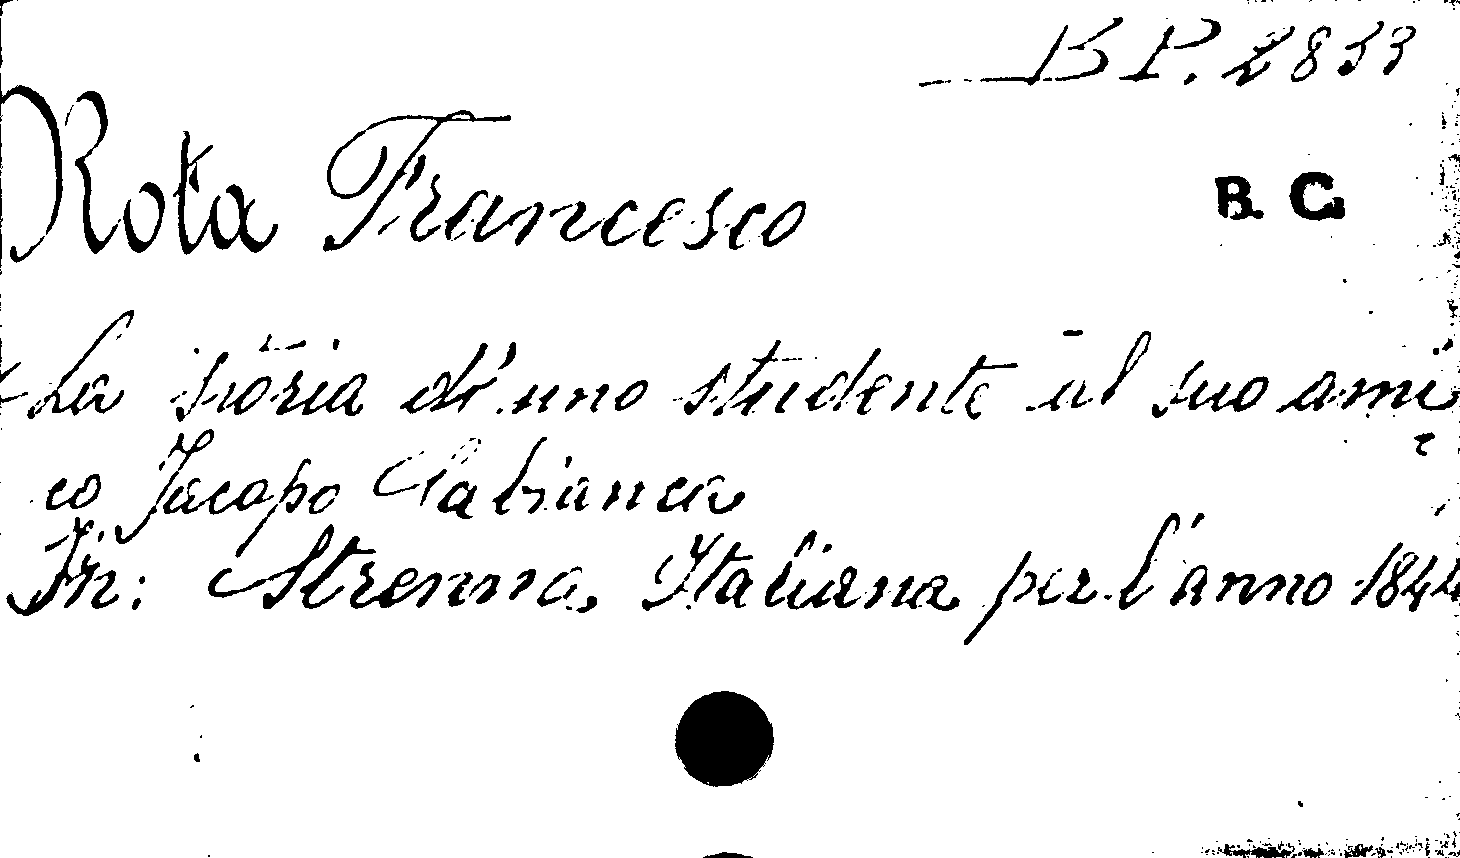 B P. 2833
Rota Francesco
B. C.
La storia d'uno studente al suo ami
co Jacopo Cabianca
In: Strenna Italiana per l'anno 1844